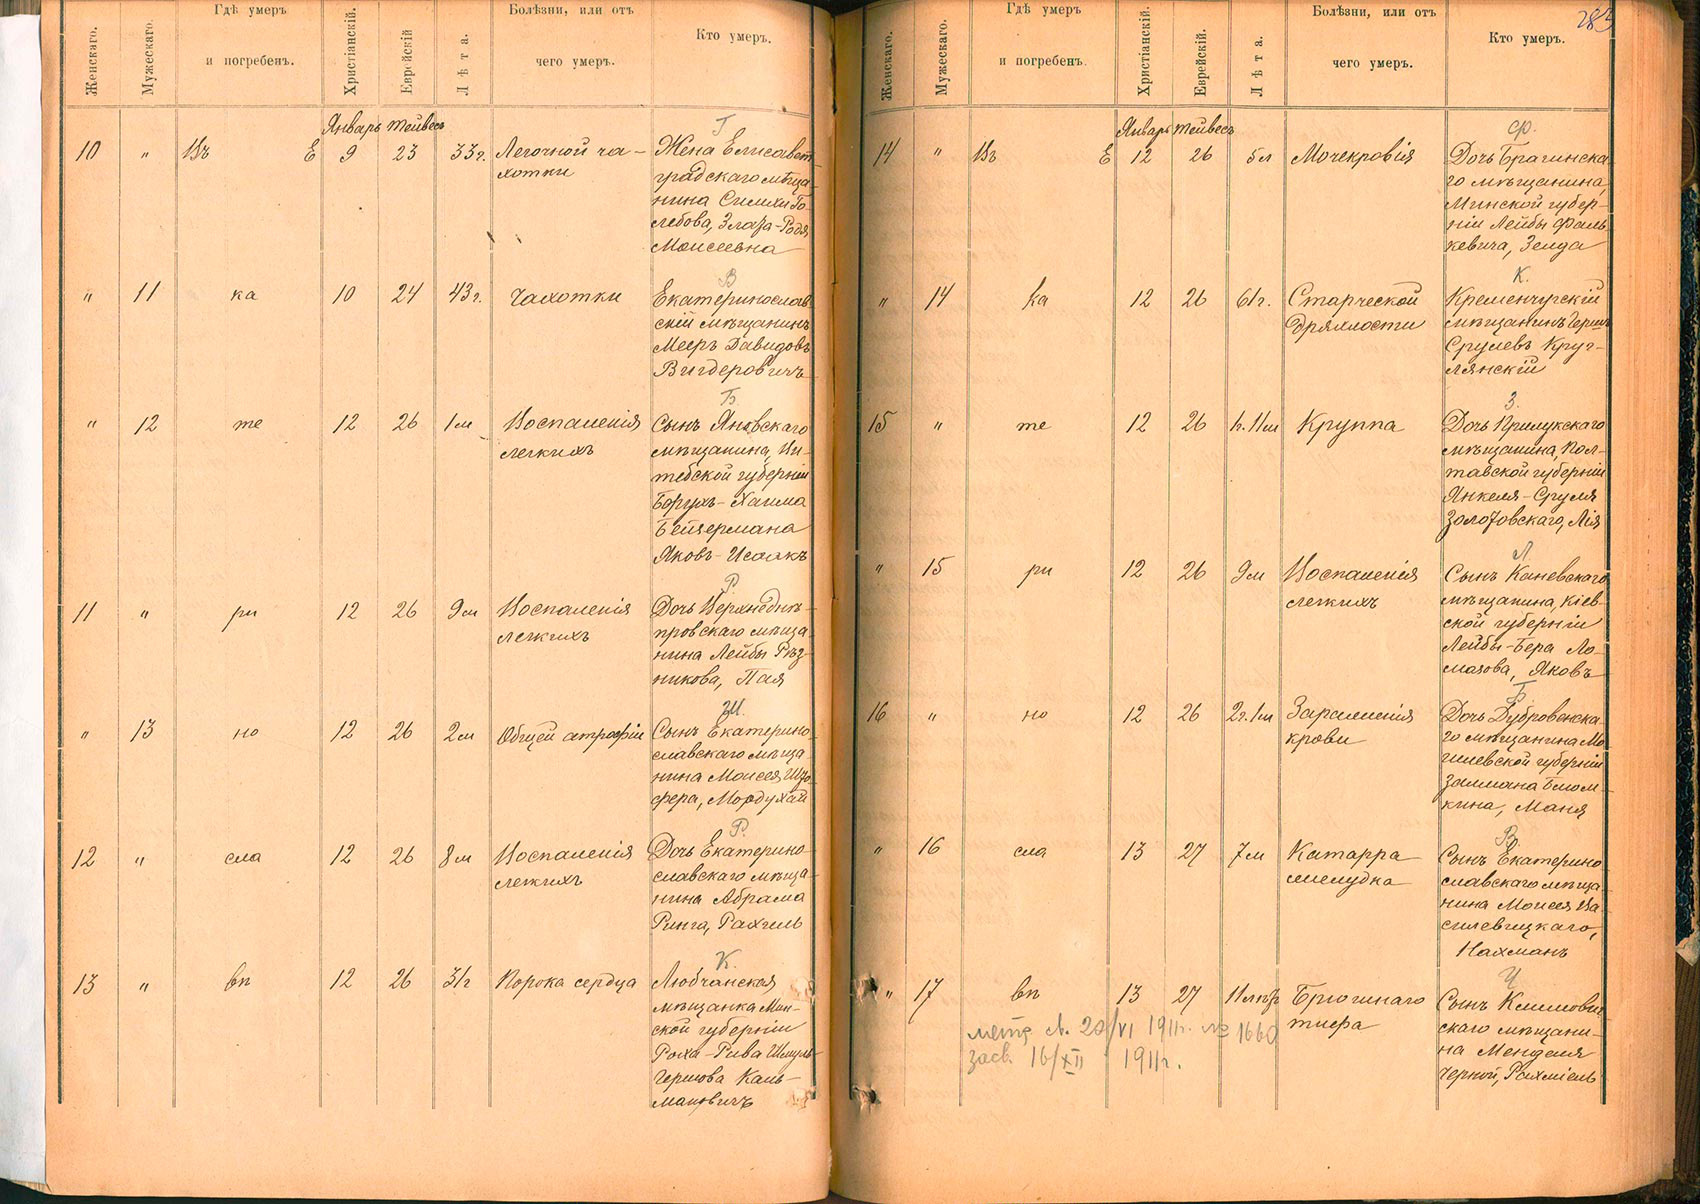 Женскаго.
Мужескаго.
Гдѣ умеръ
и погребенъ.
Христіанскій.
Еврейскій
Лѣта.
Болѣзни, или отъ
чего умеръ.
Кто умеръ.
Январь Тейвесъ
Г
10 " Въ Е 9 23 33г. Легочной ча-
хотки
Жена Елисавет-
градскаго мѣща-
нина Симхи Го-
лебова, Злата-Родя
Моисеевна
В
" 11 ка 10 24 43г. Чахотки
Екатеринослав-
скій мѣщанинъ
Мееръ Давидовъ
Вигдеровичъ
Б.
" 12 те 12 26 1м Воспаленія
легкихъ
Сынъ Яновскаго
мѣщанина, Ви-
тебской губерніи
Борухъ-Хаима
Бейзермана
Яковъ-Исаакъ
Р.
11 " ри 12 26 9м Воспаленія
легкихъ
Дочь Верхнеднѣ-
провскаго мѣща-
нина Лейбы Рѣз-
никова, Пая
Ш.
" 13 но 12 26 2м Общей атрофіи
Сынъ Екатерино-
славскаго мѣща-
нина Моисея Шо-
фера, Мордухай
Р.
12 " сла 12 26 8м Воспаленія
легкихъ
Дочь Екатерино-
славскаго мѣща-
нина Абрама
Ринга, Рахиль
К.
13 " вѣ 12 26 31г Порока сердца
Любчанская
мѣщанка Мин-
ской губерніи
Роха-Рива Шмуль-
Гершова Каль-
мановичъ
283
Женскаго.
Мужескаго.
Гдѣ умеръ
и погребенъ.
Христіанскій.
Еврейскій.
Лѣта.
Болѣзни, или отъ
чего умеръ.
Кто умеръ.
Январь Тейвесъ
Ф.
14 " Въ Е 12 26 5л Мочекровія
Дочь Брагинска-
го мѣщанина,
Минской губер-
ніи Лейбы Фаль-
кевича, Зелда
К.
" 14 ка 12 26 61г. Старческой
дряхлости
Кременчугскій
мѣщанинъ Гершъ
Срулевъ Круг-
лянскій
З.
15 " те 12 26 1г. 11м Круппа
Дочь Прилукскаго
мѣщанина, Пол-
тавской губерніи
Янкеля-Сруля
Золотовскаго, Лія
Л.
" 15 ри 12 26 9м Воспаленія
легкихъ
Сынъ Каневскаго
мѣщанина, Кіев-
ской губерніи
Лейбы-Бера Ло-
мазова, Яковъ
Б
16 " но 12 26 2г. 1м Зараженія
крови
Дочь Дубровенска-
го мѣщанина Мо-
гилевской губерніи
Залмана Блюм-
кина, Маня
В
" 16 сла 13 27 7м Катарра
желудка
Сынъ Екатерино-
славскаго мѣща-
нина Моисея Ва-
силевицкаго,
Нахманъ
Ч
" 17 вѣ 13 27 11л Брюшнаго
тифа
Сынъ Климович-
скаго мѣщани-
на Менделя
Черной, Рахміель
метр. 20/VI 1911г. № 1660
засв. 16/XII 1911г.